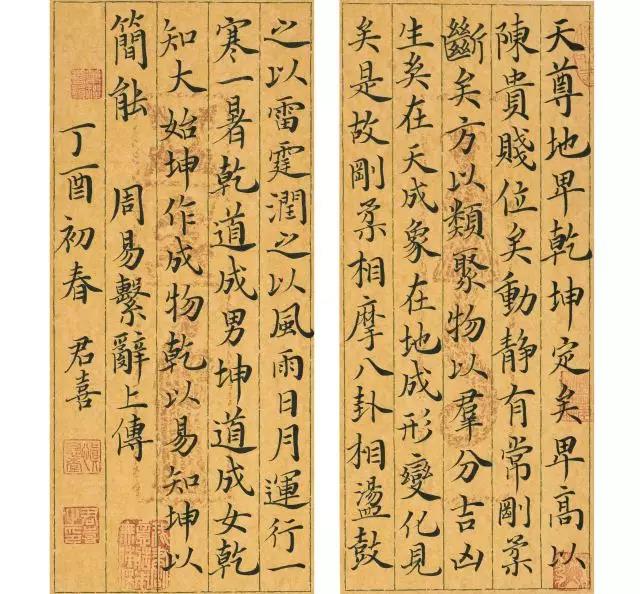 天尊地卑乾坤定矣卑高以
陳貴賤位矣動靜有常剛柔
斷矣方以類聚物以羣分吉凶
生矣在天成象在地成形變化見
矣是故剛柔相摩八卦相盪鼓
之以雷霆潤之以風雨日月運行一
寒一暑乾道成男坤道成女乾
知大始坤作成物乾以易知坤以
簡能 周易繫辭上傳
丁酉初春 君喜